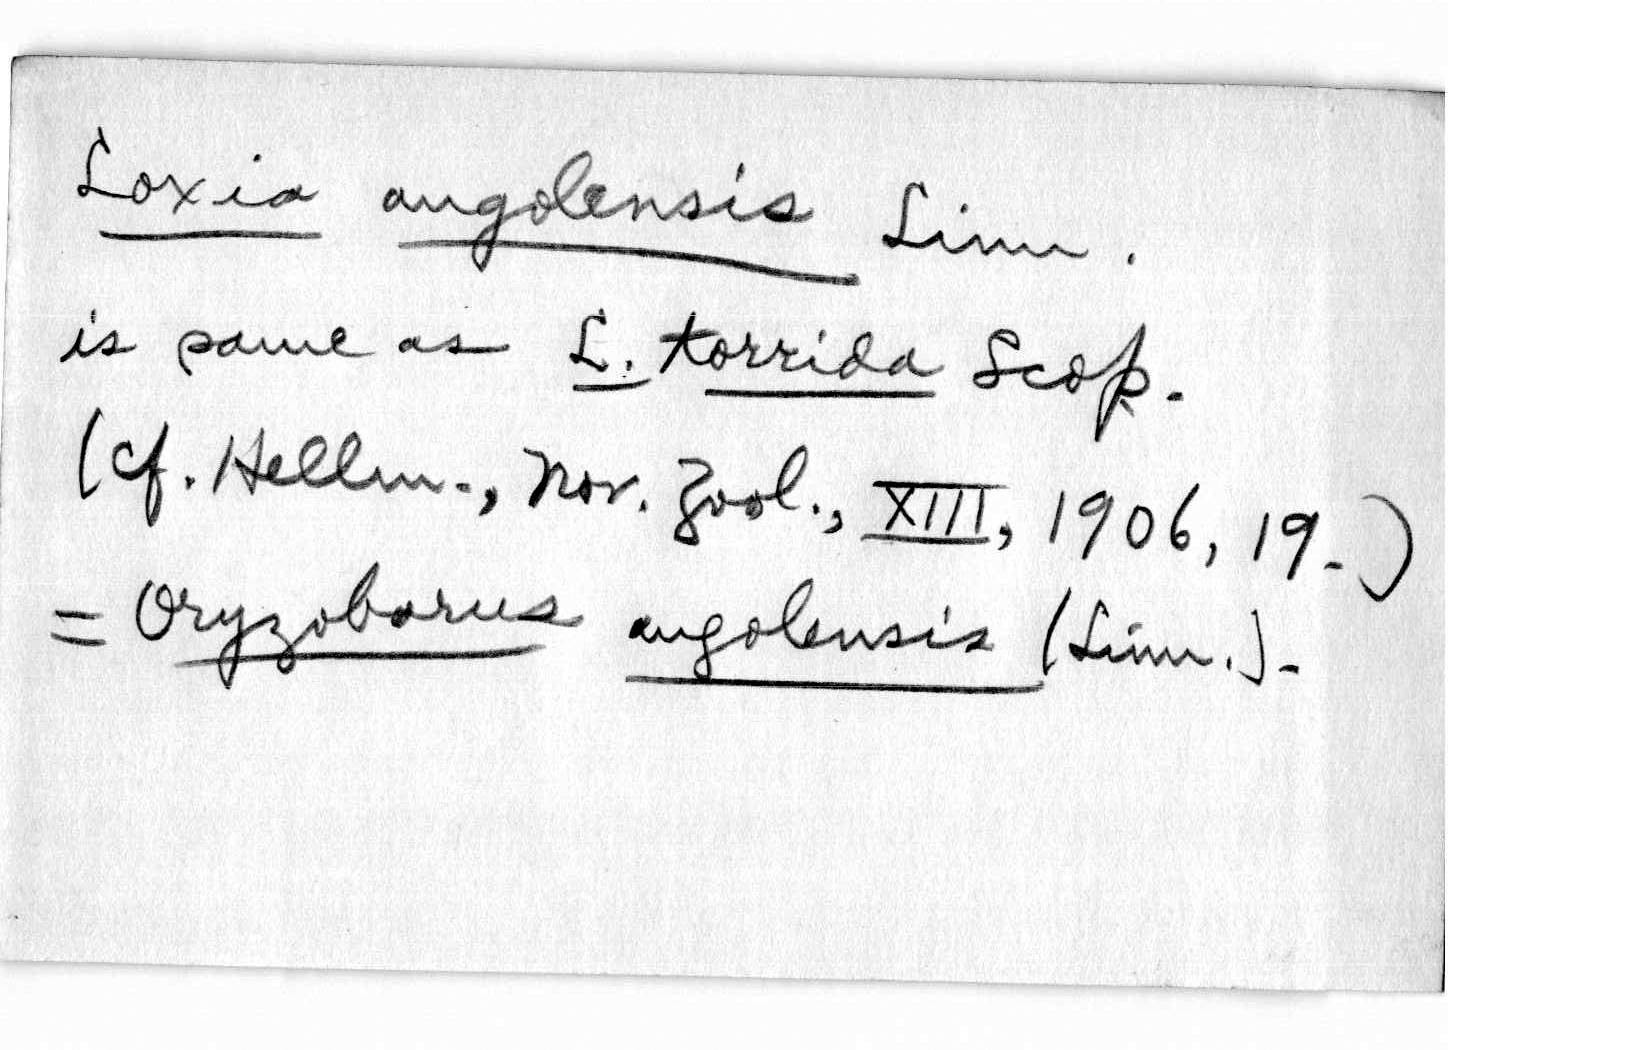 Loxia angolensis Linn.
is same as L. torrida Scop.
(cf. Hellm., Nov. Zool., XIII, 1906, 19.)
= Oryzoborus angolensis (Linn.).